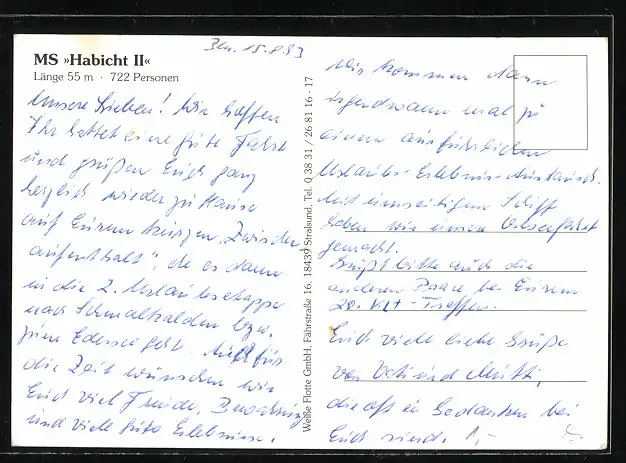 15.8.93
MS »Habicht II«
Länge 55 m · 722 Personen
Unsere Lieben! Wir hoffen
Ihr hattet eine gute Fahrt
und grüßen Euch ganz
herzlich wieder zu Hause
auf Eurem kurzen „Zwischen
aufenthalt", da es dann
in die 2. Urlaubsetappe
nach Schmalkalden bzw.
zum Edersee geht. Auch für
die Zeit wünschen wir
Euch viel Freude, Bewahrung
und viele gute Erlebnisse.
Weiße Flotte GmbH, Fährstraße 16, 18439 Stralsund, Tel. 0 38 31 / 26 81 16 - 17
Wir kommen dann
irgendwann mal zu
einem ausführlichen
Urlaubs-Erlebnis-Austausch.
Mit umseitigem Schiff
haben wir unsere Ostseefahrt
gemacht.
Grüßt bitte auch die
anderen Paare bei Eurem
Treffen.
Euch viele liebe Grüße
von Vati und Mutti,
die oft in Gedanken bei
Euch sind.
1,-